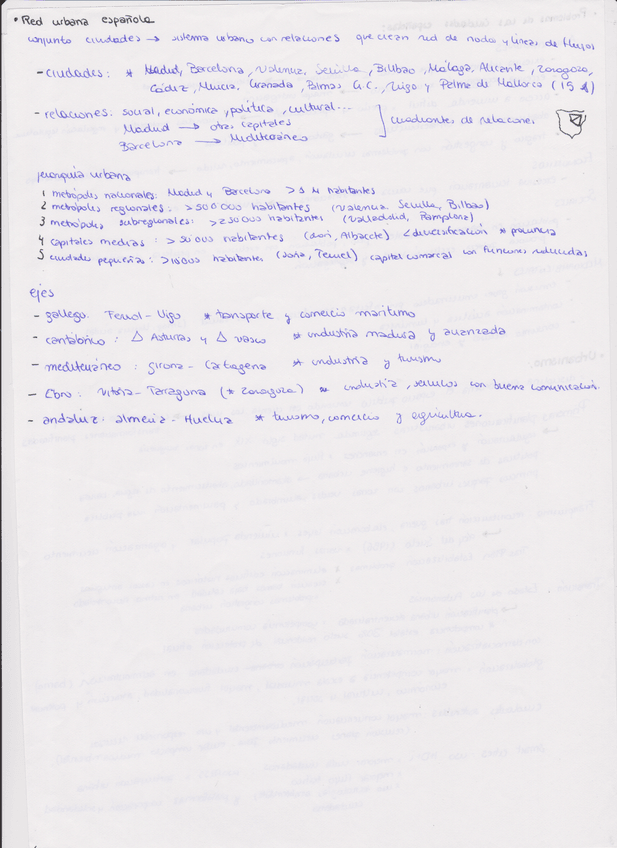 • Red urbana española
conjunto ciudades → sistema urbano con relaciones que crean red de nodos y líneas de flujos
- ciudades: * Madrid, Barcelona, Valencia, Sevilla, Bilbao, Málaga, Alicante, Zaragoza,
Cádiz, Murcia, Granada, Palmas G.C., Vigo y Palma de Mallorca (15
- relaciones: social, económica, política, cultural...
Madrid → otras capitales
Barcelona → Mediterráneo
cuadrantes de relaciones
jerarquía urbana
1 metrópolis nacionales: Madrid y Barcelona > 1 M habitantes
2 metrópolis regionales: > 500000 habitantes (Valencia, Sevilla, Bilbao)
3 metrópolis subregionales: > 250000 habitantes (Valladolid, Pamplona)
4 capitales medias: > 50000 habitantes ( Albacete) < diversificación * provincia
5 ciudades pequeñas: > 10000 habitantes (Soria, Teruel) capital comarcal con funciones reducidas
ejes
- gallego: Ferrol - Vigo * transporte y comercio marítimo
- cantábrico: △ Asturias y △ vasco * industria madura y avanzada
- mediterráneo: girona - Cartagena * industria y turismo
- Ebro: Vitoria - Tarragona (* Zaragoza) * industria, servicios con buena comunicación.
- andaluz: almería - Huelva * turismo, comercio y agricultura.